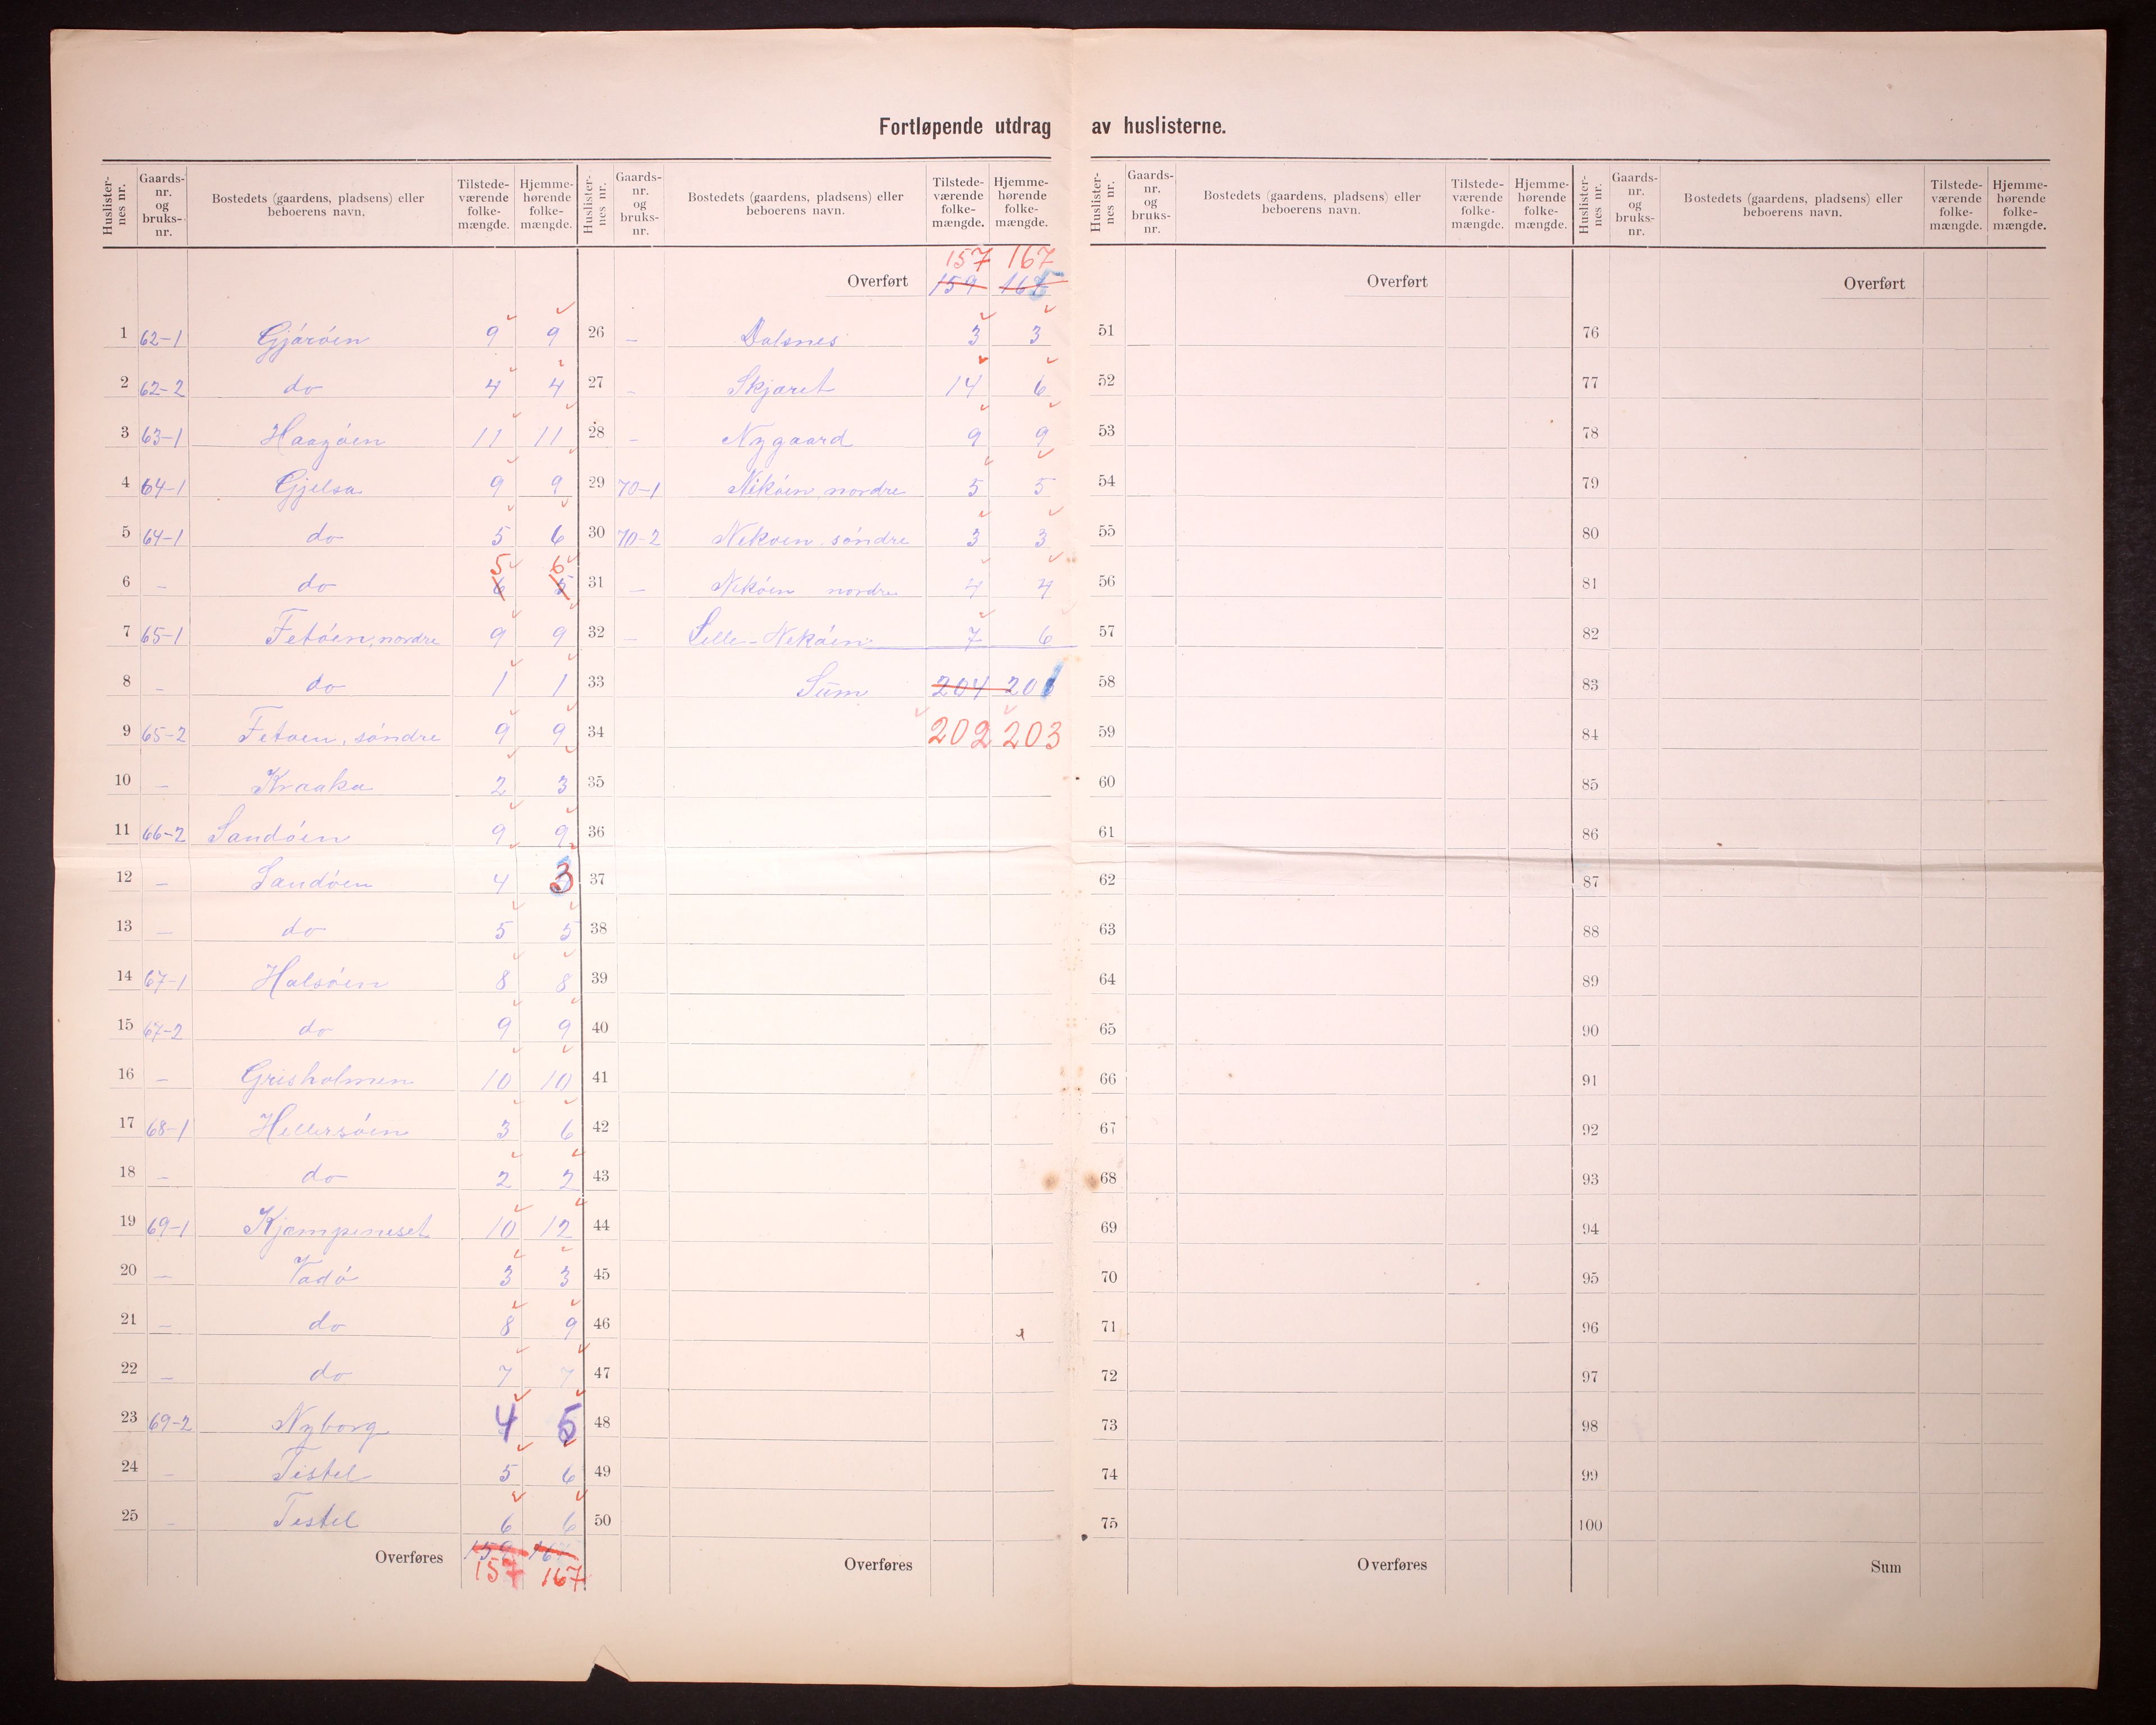 Fortløpende utdrag av huslisterne.
Huslister-nes nr. Gaards-nr. og bruks-nr. Bostedets (gaardens, pladsens) eller beboerens navn. Tilstede-værende folke-mængde. Hjemme-hørende folke-mængde.
1 62-1 Gjárøen 9 9
2 62-2 do 4 4
3 63-1 Haagøen 11 11
4 64-1 Gjelsa 9 9
5 64-1 do 5 6
6 - do 6 5 5 6
7 65-1 Fetøen, nordre 9 9
8 - do 1 1
9 65-2 Fetøen, søndre 9 9
10 - Kraaka 2 3
11 66-2 Sandøen 9 9
12 - Sandøen 4 3
13 - do 5 5
14 67-1 Halsøen 8 8
15 67-2 do 9 9
16 - Grisholmen 10 10
17 68-1 Hellersøen 3 6
18 - do 2 2
19 69-1 Kjæmpeneset 10 12
20 - Vadø 3 3
21 - do 8 9
22 - do 7 7
23 69-2 Nyborg 4 5
24 - Tistel 5 6
25 - Tistel 6 6
Overføres 159
157 167
Huslister-nes nr. Gaards-nr. og bruks-nr. Bostedets (gaardens, pladsens) eller beboerens navn. Tilstede-værende folke-mængde. Hjemme-hørende folke-mængde.
157 167
Overført 159
26 - Dalsnes 3 3
27 - Skjæret 14 6
28 - Nygaard 9 9
29 70-1 Nekøen nordre 5 5
30 70-2 Nekøen søndre 3 3
31 - Nekøen nordre 4 4
32 - Lille-Nekøen 7 6
33 Sum 204 201
34 202 203
35
36
37
38
39
40
41
42
43
44
45
46
47
48
49
50
Overføres
Huslister-nes nr. Gaards-nr. og bruks-nr. Bostedets (gaardens, pladsens) eller beboerens navn. Tilstede-værende folke-mængde. Hjemme-hørende folke-mængde.
Overført
51
52
53
54
55
56
57
58
59
60
61
62
63
64
65
66
67
68
69
70
71
72
73
74
75
Overføres
Huslister-nes nr. Gaards-nr. og bruks-nr. Bostedets (gaardens, pladsens) eller beboerens navn. Tilstede-værende folke-mængde. Hjemme-hørende folke-mængde.
Overført
76
77
78
79
80
81
82
83
84
85
86
87
88
89
90
91
92
93
94
95
96
97
98
99
100
Sum